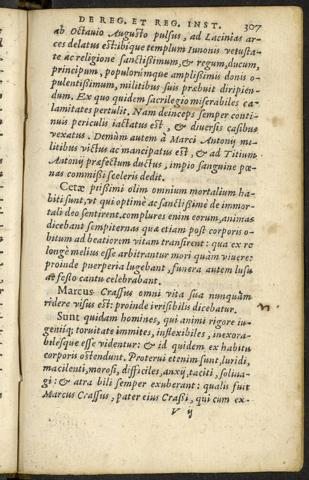 DE REG. ET REG. INST. 307
ab Octauio Augusto pulsus, ad Lacinias ar-
ces delatus estibique templum Iunonis vetusta-
te ac religione sanctißimum, & regum, ducum,
principum, populorumque amplißimis donis o-
pulentißimum, militibus suis præbuit diripien-
dum. Ex quo quidem sacrilegio miserabiles ca-
lamitates pertulit. Nam deinceps semper conti-
nuis periculis iactatus est, & diuersis casibus
vexatus. Demùm autem à Marci Antonij mi-
litibus victus ac mancipatus est, & ad Titium
Antonij præfectum ductus, impio sanguine pœ-
nas commißi sceleris dedit.
Cetæ pijßimi olim omnium mortalium ha-
biti sunt, vt qui optimè ac sanctißimè de immor-
tali deo sentirent. complures enim eorum, animas
dicebant sempiternas qua etiam post corporis o-
bitum ad beatiorem vitam transirent: qua ex re
longè melius esse arbitrantur mori quàm viuere:
proinde puerperia lugebant, funera autem lusu
ac festo cantu celebrabant.
Marcus Crassus omni vita sua nunquàm
ridere visus est: proinde irrisibilis dicebatur.
Sunt quidam homines, qui animi rigore iu-
geniiq; toruitate immites, inflexibiles, inexora-
bilesque esse videntur: & id quidem ex habitu
corporis ostendunt. Proterui etenim sunt, luridi,
macilenti, morosi, difficiles, anxij, taciti, soliua-
gi: & atra bili semper exuberant: qualis fuit
Marcus Crassus, pater eius Craßi, qui cum ex-
V ij